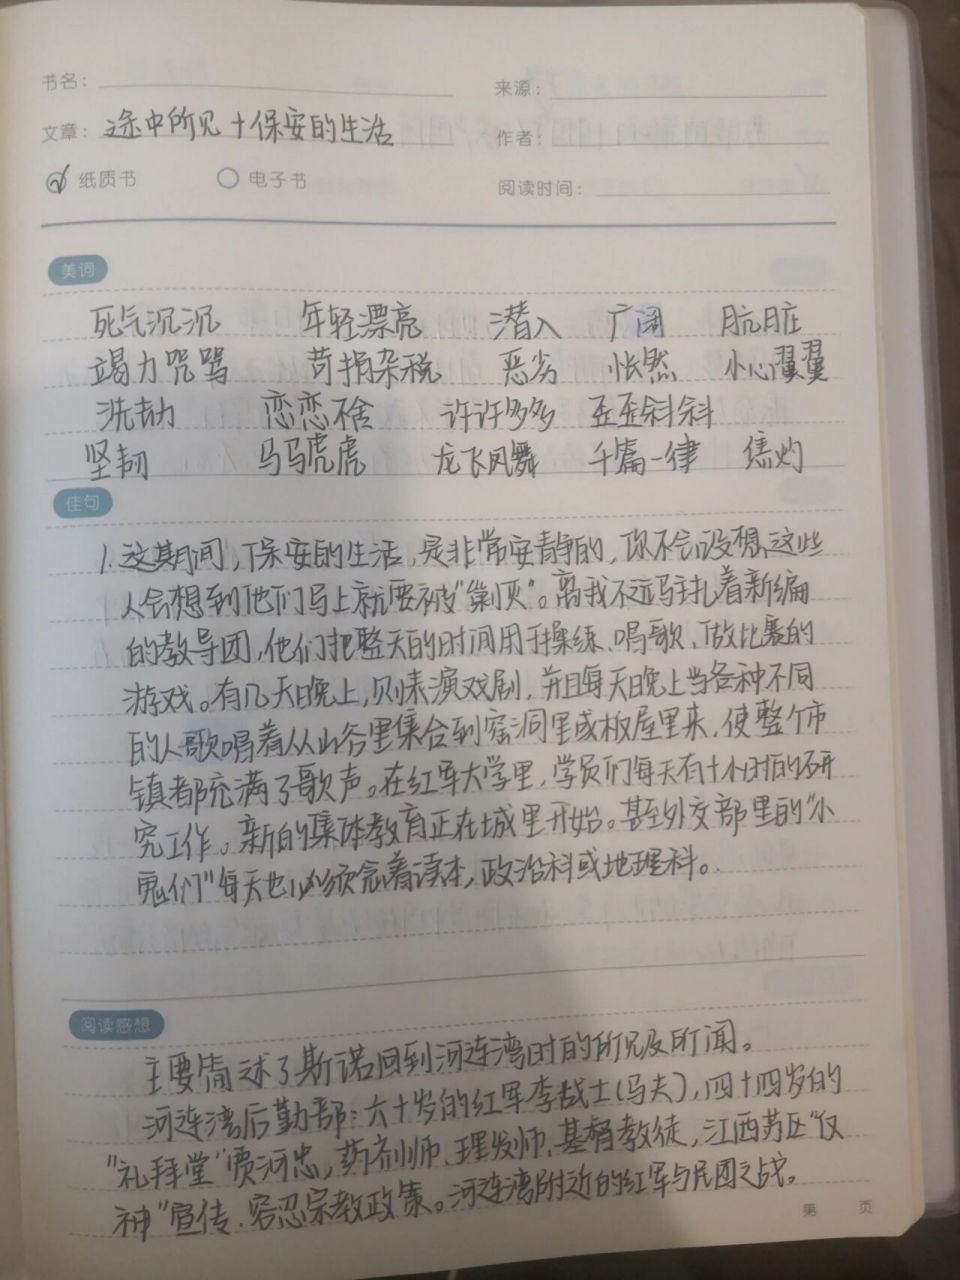 书名：
来源：
文章：途中所见+保安的生活
作者：
纸质书 电子书
阅读时间：
美词
死气沉沉 年轻漂亮 潜入 广阔 肮脏
竭力咒骂 苛捐杂税 恶劣 怅然 小心翼翼
洗劫 恋恋不舍 许许多多 歪歪斜斜
坚韧 马马虎虎 龙飞凤舞 千篇一律 焦灼
佳句
1.这期间,保安的生活,是非常安静的,你不会设想,这些
人会想到他们马上就要被“剿灭”。离我不远驻扎着新编
的教导团,他们把整天的时间用于操练、唱歌、做比赛的
游戏。有几天晚上,则来演戏剧,并且每天晚上当各种不同
的人歌唱着从山谷里集合到窑洞里或板屋里来,使整个市
镇都充满了歌声。在红军大学里,学员们每天有十小时的研
究工作。新的集体教育正在城里开始。甚至外交部里的“小
鬼们”每天也必须念着读本,政治科或地理科。
阅读感想
主要简述了斯诺回到河连湾时的所见及所闻。
河连湾后勤部:六十岁的红军李战士(马夫),四十四岁的
“礼拜堂”贾河忠,药剂师、理发师、基督教徒,江西苏区“仅
神”宣传、容忍宗教政策。河连湾附近的红军与民团之战。
第 页